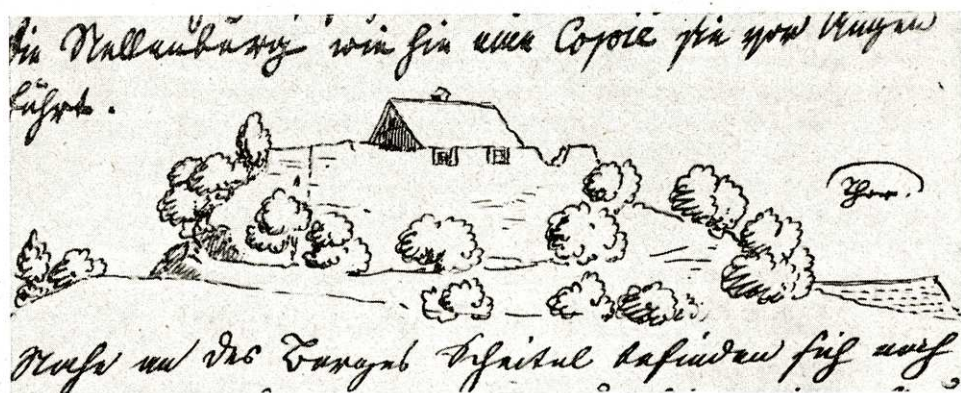 die Nellenburg wie hie eine Copie sie vor Augen
führt.
Thor.
Nahe an des Berges Scheitel befinden sich noch